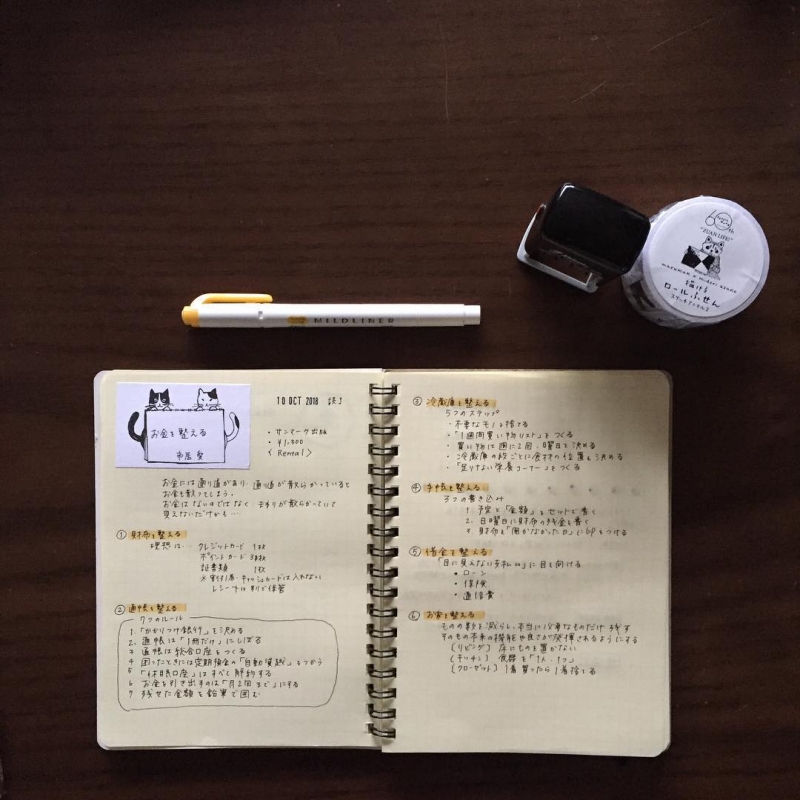 60th
"ZUAN LIFE!"
描ける
ロールふせん
MILDLINER
お金を整える
市居 愛
10 OCT 2018
・サンマーク出版
・¥1,500
〈Rental〉
お金には通り道があり、通り道が散らかっていると
お金も散ってしまう。
お金はないのではなく、去りが散らかっていて
見えないだけかも…
① 財布を整える
理想は… クレジットカード 1枚
ポイントカード 3枚
証書類 1枚
※割引券・キャッシュカードは入れない
レシートは別で保管
② 通帳を整える
7つのルール
1 「かかりつけ銀行」を決める
2. 通帳は「1冊だけ」にしぼる
3 通帳は総合口座をつくる
4 困ったときには定期預金の「自動貸越」をつかう
5 「休眠口座」はすべて解約する
6 お金を引き出すのは「月2回まで」にする
7 残せた金額を鉛筆で囲む
③ 冷蔵庫を整える
5つのステップ
・不要なモノを捨てる
・「1週間買い物リスト」をつくる
・買い物は週に2回、曜日を決める
・冷蔵庫の段ごとに食材の位置を決める
・「足りない栄養コーナー」をつくる
④ 手帳を整える
3つの書き込み
1. 予定と「金額」をセットで書く
2. 日曜日に財布の残金を書く
3. 財布を「開かなかった日」に印をつける
⑤ 借金を整える
「目に見えない支払い」に目を向ける
・ローン
・保険
・通信費
⑥ お家を整える
ものの数を減らし、本当に必要なものだけ残す
そのもの本来の機能や良さが発揮されるようにする
(リビング) 床にものを置かない
(キッチン) 食器を「1人、1つ」
(クローゼット) 1着買ったら1着捨てる